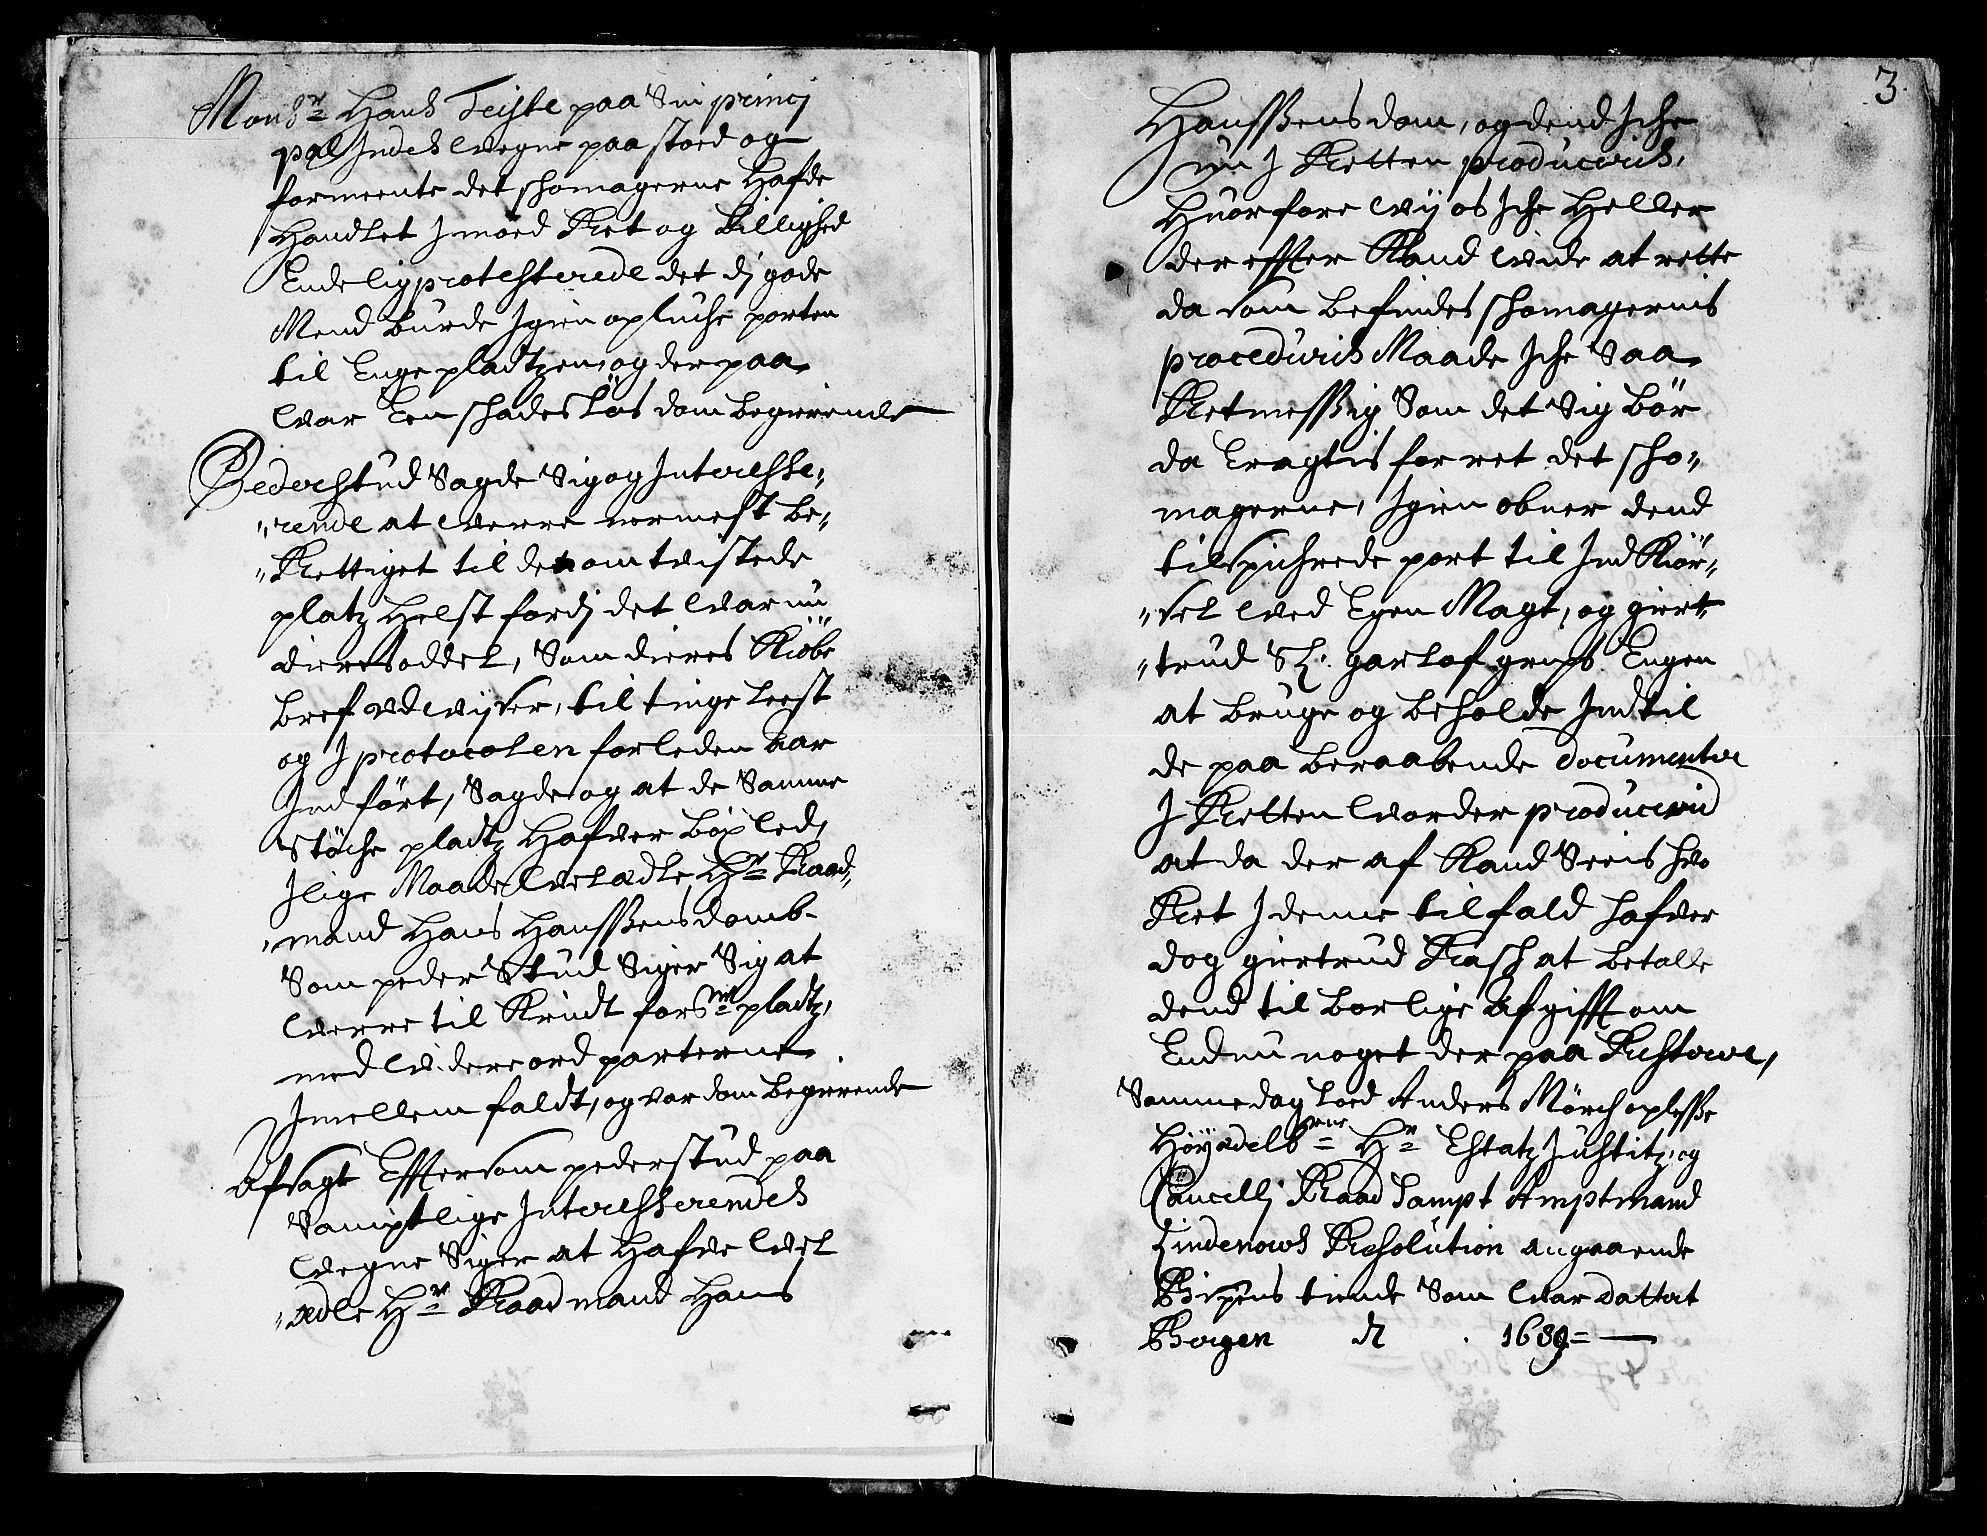 Monsr Hans Teiste paa Sin princi
pal Indes Vegne paastoed og
formeente det schomagerne Hafde
Handlet Jmoed Ret og Billighed
Endelig protesterede det dj gode
Mend burde Jgien opluche porten
til Enge pladtzen, og der paa
Var Een schadeslös dom begierende
Peder Stud Sagde Sig og Interesse,,
,,rende at Verre nermest be,,
,,Rettiget til det omtvistede
platz Helst fordj det Var nu
dieres oddel, Som dieres Kiöbe
bref udviser, til tinge Lest
og J protocolen forleden Aar
Indfört, Sagde og at de Samme
Stöche pladtz Hafver böxled,
Jlige Maade Velædle Hr Raad,,
,,mand Hans Hanssens domb
Som peder Stud Siger Sig at
Verre til Rindt for pladtz,
med Videre ord parterne
Jmellem faldt, og var dom begierende
Afsagt Effter som peder Stud paa
Samptlige Interesserendes
Vegne Siger at Hafve Vel
,,ædle Hr Raadmand Hans
3
Hanssens dom, og dend Jche
nu J Retten produceris,
Huorfore Vij os Jche Heller
der effter Kand Vide at rette
da som befindes schomagernis
proceduris Maade Jche Saa
Retmessig Som det Sig bör
da Eragtis for ret det scho,,
magerne, Jgien obner dend
tilspichrede port til Ind Kiör,,
,,sel Ved Egen Magt, og giert,,
,,trud Sl: garlof grips Engen
at bruge og beholde Indtil
de paa beraabende documenter
J Retten Vorder producerid
at da der af Kand Sees huo
Ret J denne tilfald hafver
dog giertrud Rasch at betalle
dend tilbørlige Afgifft om
Endnu noget der paa Restere,
Samme dag Loed Anders Mörch oplesse
Höyædelb: Hr Estatz Justitz, og
Cancellj Raad Sampt Amptmand
Lindenows Resolution angaaende
Bispens tiende Som Var dattert
Bergen d 1689 =